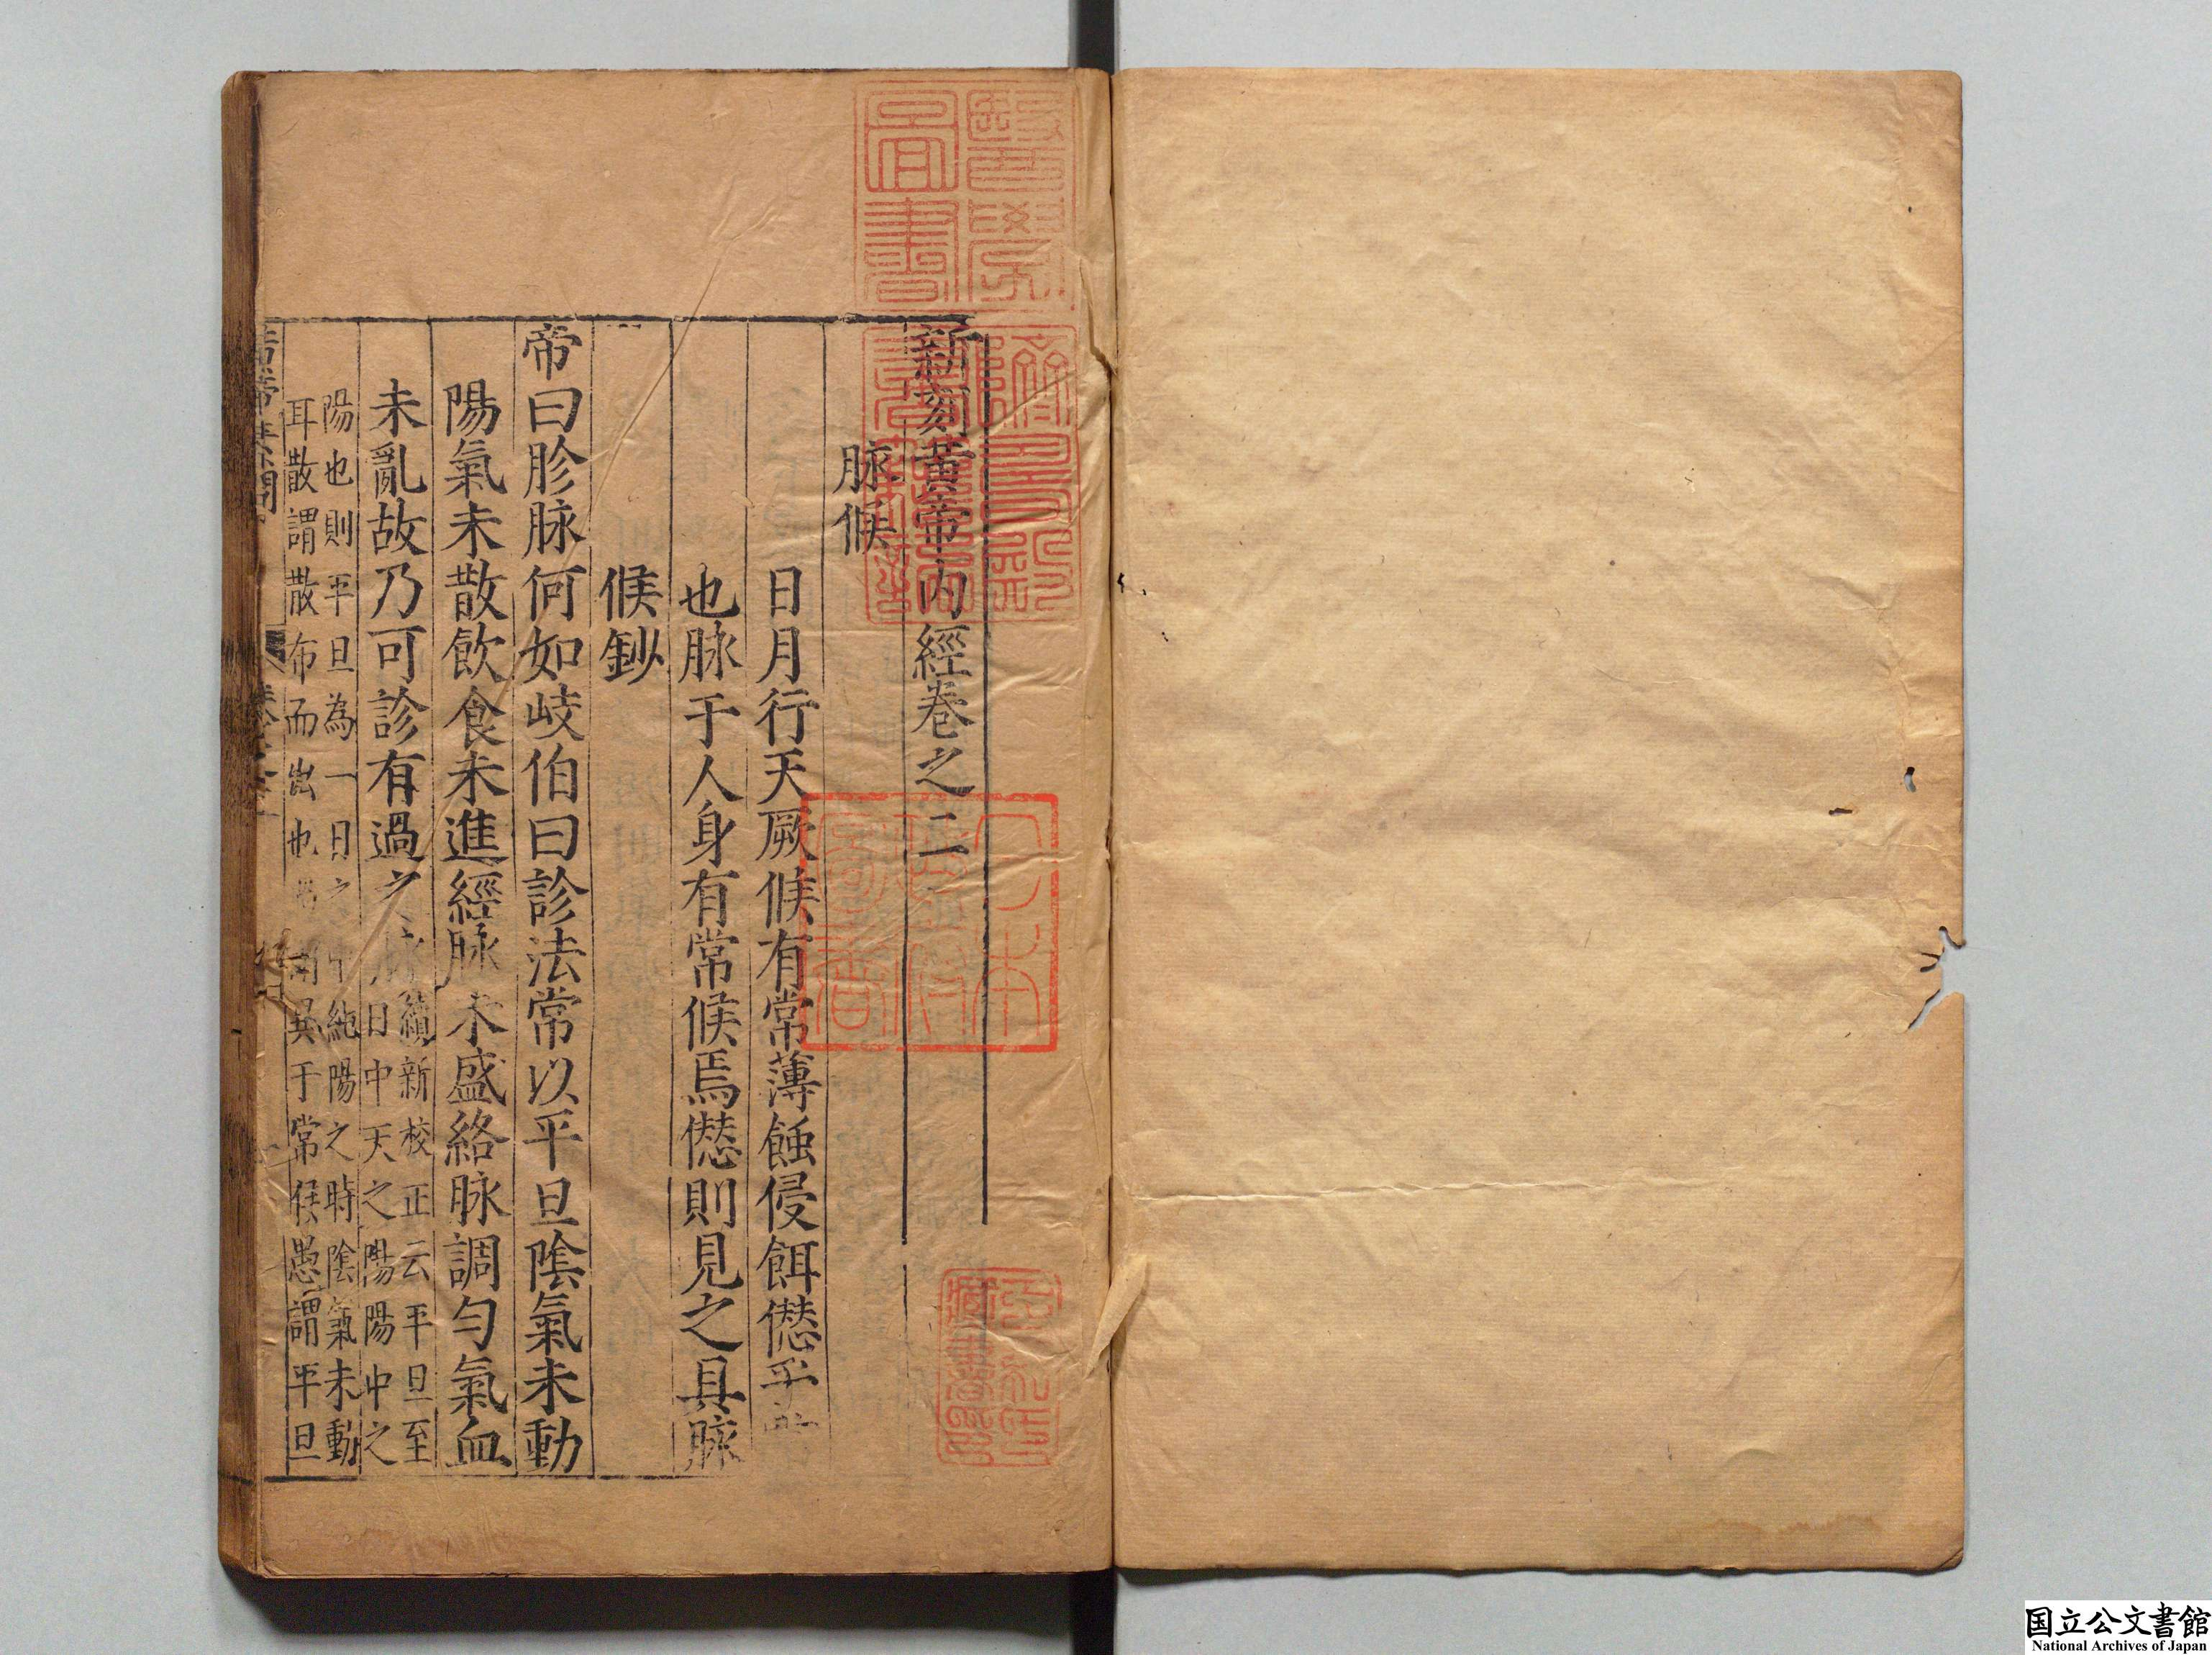 新刻黃帝内經卷之二
脉候
日月行天厥候有常薄蝕侵餌僽乎
也脉于人身有常候焉僽則見之具脉
候鈔
帝曰胗脉何如岐伯曰診法常以平旦陰氣未動
陽氣未散飲食未進經脉未盛絡脉調勻氣血
未亂故乃可診有過之脉
續新校正云平旦至
日中天之陽陽中之
陽也則平旦為一日之中純陽之時陰氣未動
耳散謂散布而出也 異于常候愚謂平旦
醫學圖書
躋壽殿書籍記
日本政府圖書
国立公文書館
National Archives of Japan